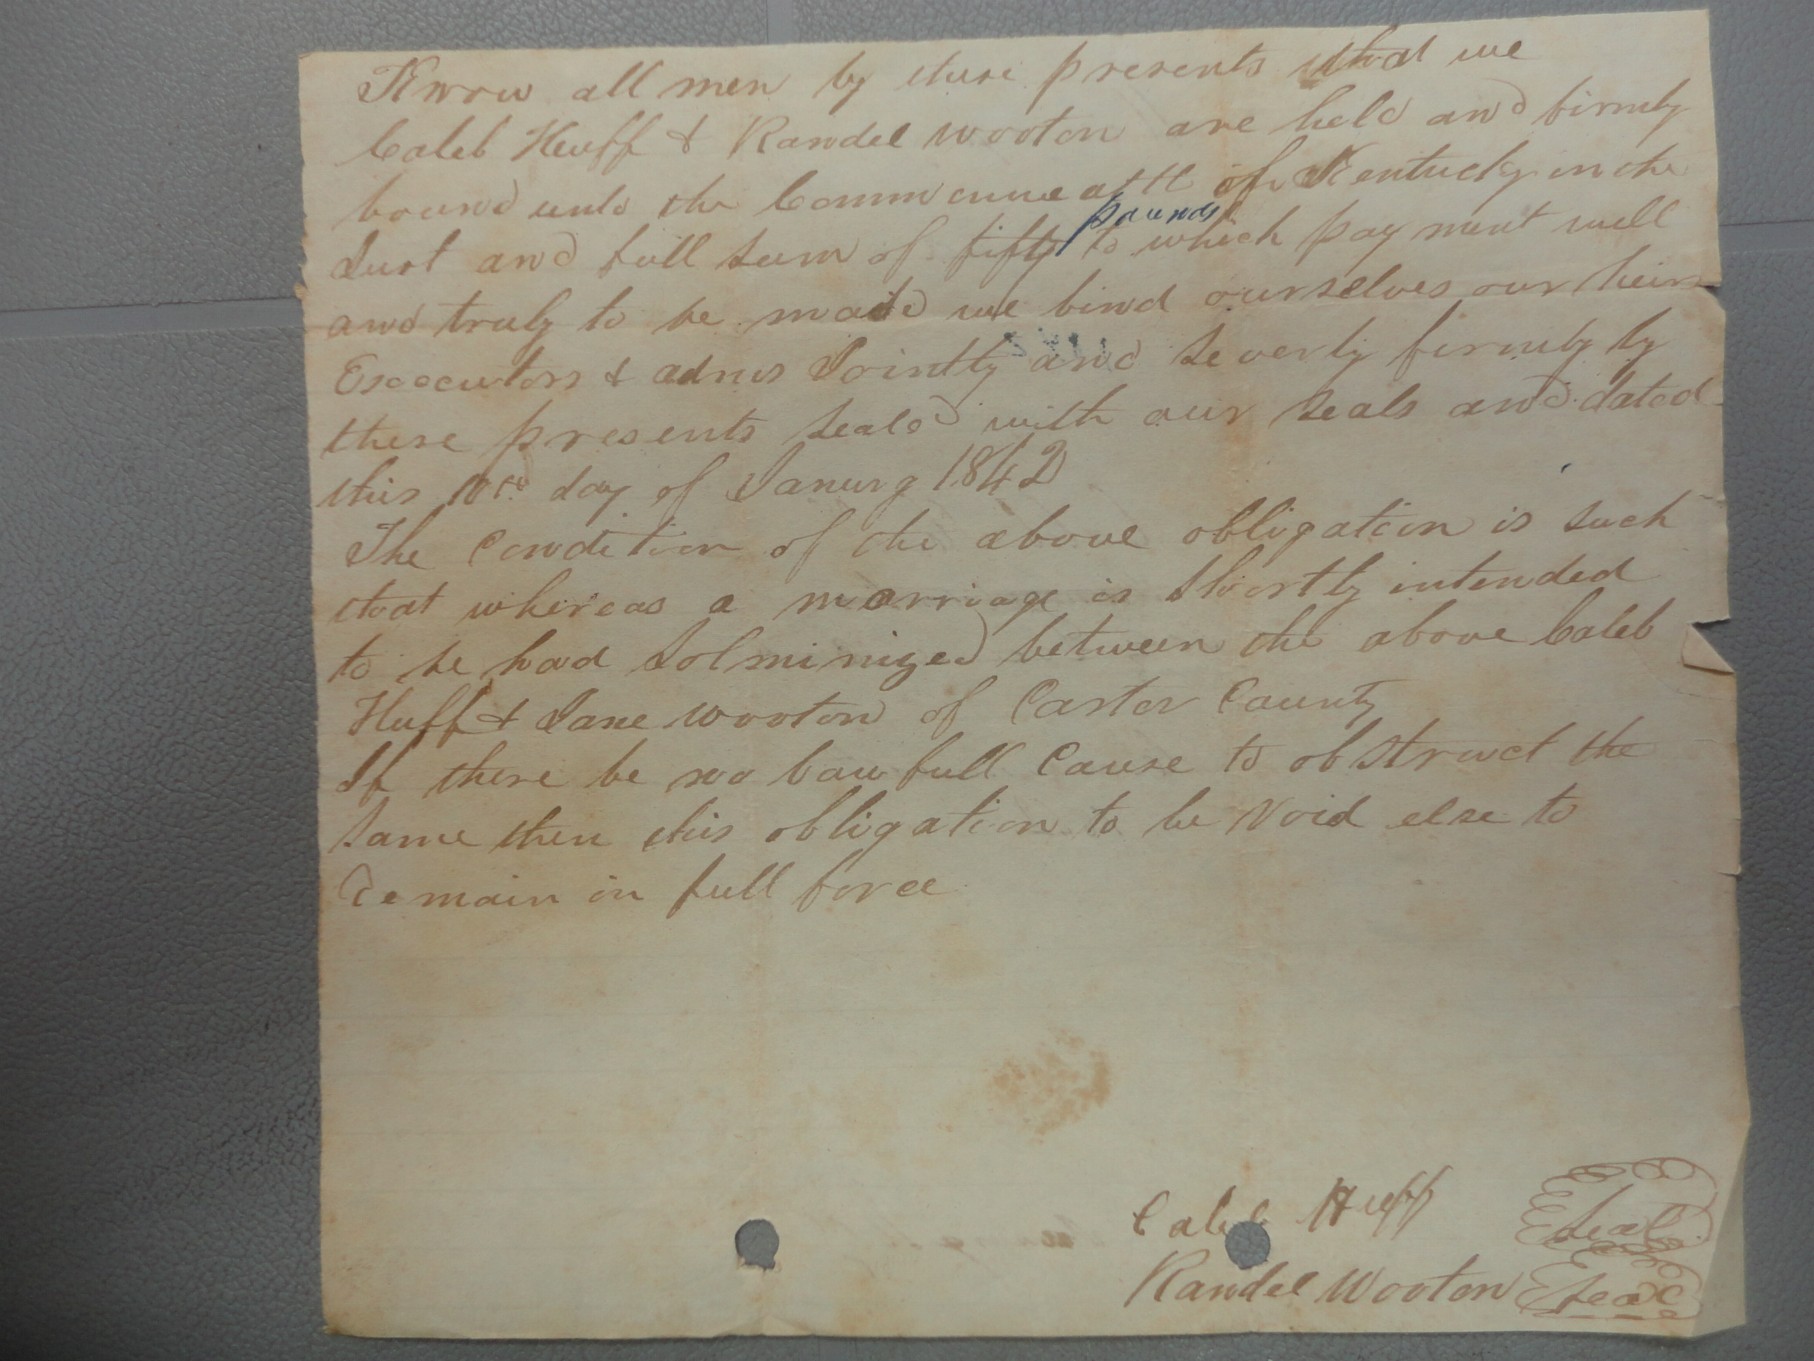 Know all men by these presents that we
Caleb Huff & Randel Wooton are held and firmly
bound unto the Commonwealth of Kentucky in the
Just and full sum of fifty pounds to which pay ment well
and truly to be made we bind ourselves our heirs
Executors & admrs Jointly and Severly firmly by
these presents seald with our seals and dated
this 10th day of Janury 1842
The Condition of the above obligation is such
that whereas a marriage is Shortly intended
to be had Solminized between the above Caleb
Huff & Jane Wooton of Carter County
If there be no Lawfull Cause to obstruct the
same then this obligation to be Void else to
Remain in full force
Caleb Huff Seal
Randel Wooton Seal